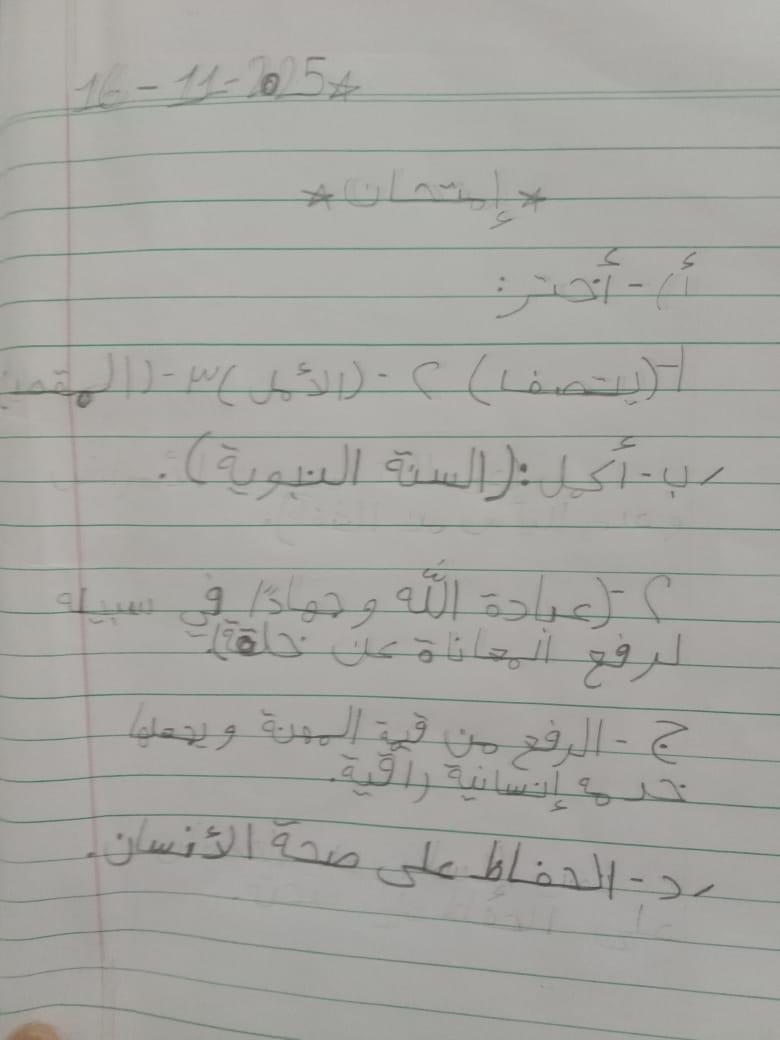 16-11-2025*
*إمتحان*
أ)-أختر:
١-(يتصفا) ٢-(الأمل) ٣-(
ب-أكمل:(السنة النبوية).
٢-(عبادة الله وجهادًا في سبيله
لرفع المعاناة عن خلقة).
ج-الرفع من قيمة المهنة ويجعلها
خدمه إنسانية راقية.
د-الحفاظ على صحة الأنسان.